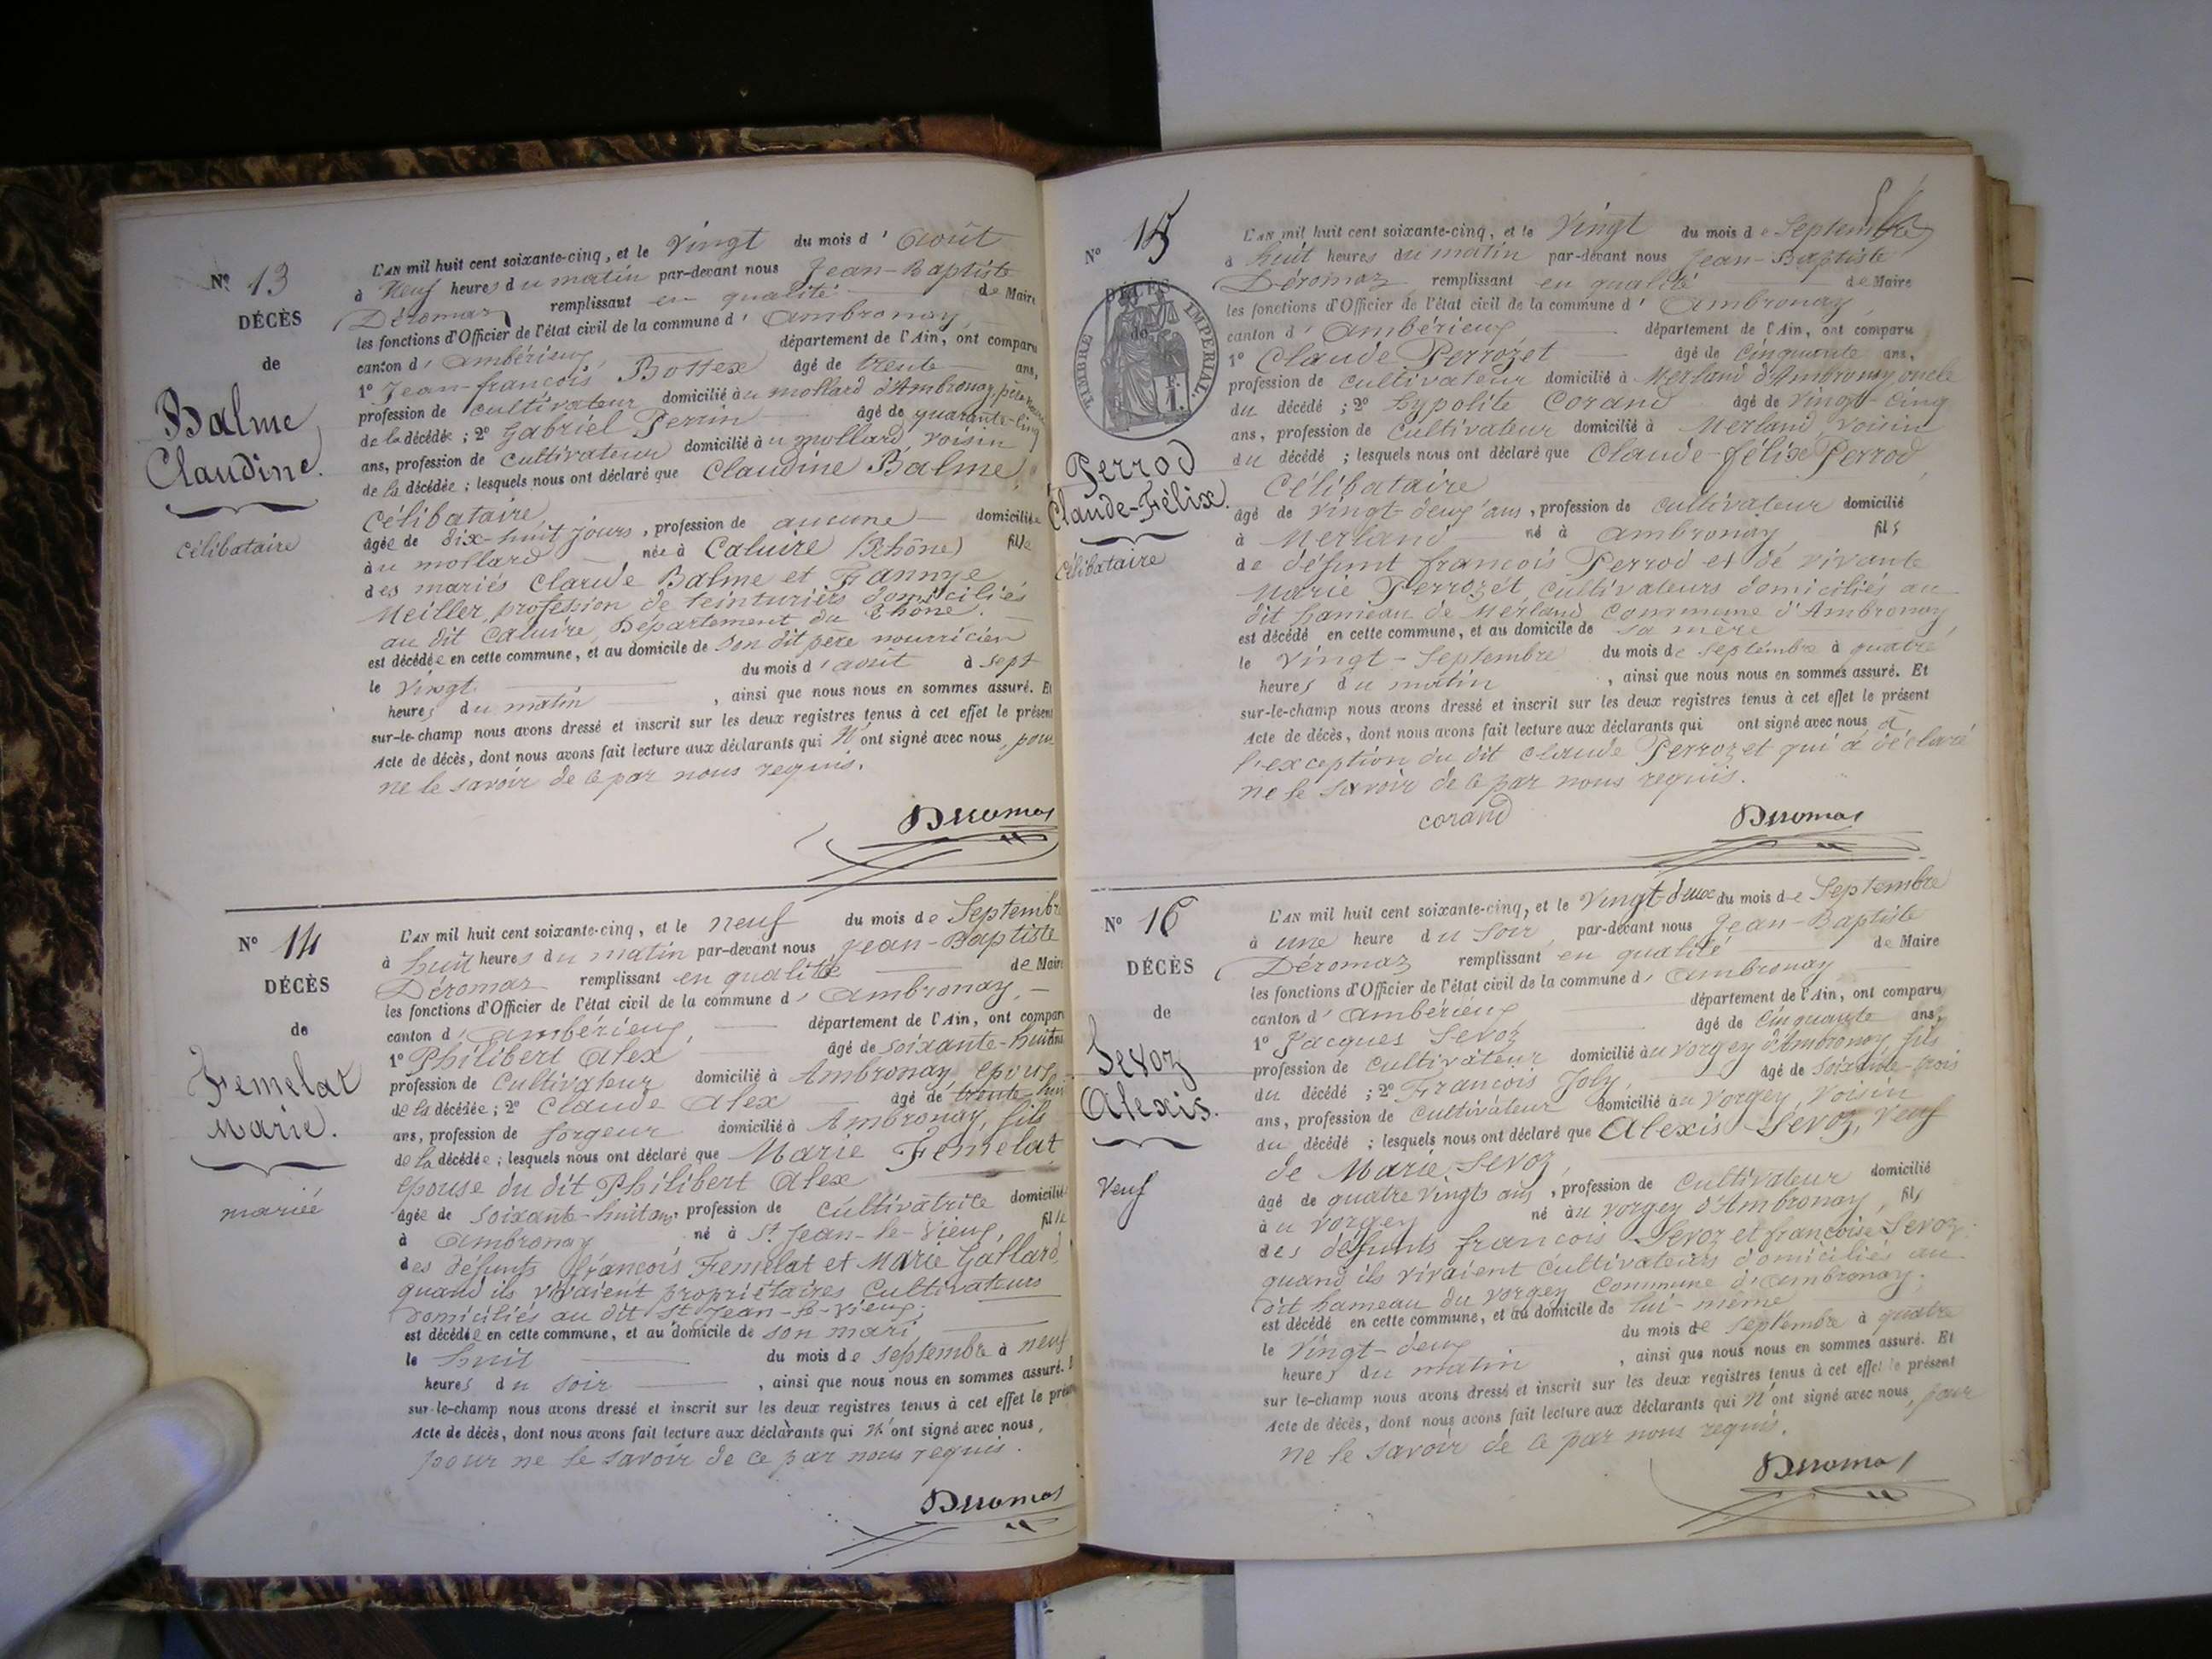 Nº 13
DÉCÈS
de
Balme
Claudine.
célibataire
L'AN mil huit cent soixante-cinq, et le Vingt du mois d'Août
à Neuf heures du matin par-devant nous Jean-Baptiste
Déromas remplissant en qualité de Maire
les fonctions d'Officier de l'état civil de la commune d'Ambronay,
canton d'Ambérieux département de l'Ain, ont comparu
1º Jean-françois Bottex âgé de trente ans,
profession de cultivateur domicilié au mollard d'Ambronay, père
de la décédée ; 2º Gabriel Perrin âgé de quarante-cinq
ans, profession de cultivateur domicilié au mollard, voisin
de la décédée ; lesquels nous ont déclaré que Claudine Balme,
célibataire
âgée de dix-huit jours, profession de aucune domiciliée
au mollard née à Caluire (Rhône) fille
des mariés Claude Balme et Fannye
Meiller, profession de teinturiers domiciliés
au dit Caluire, Département du Rhône.
est décédée en cette commune, et au domicile de son dit père nourricier
le vingt du mois d'août à sept
heures du matin, ainsi que nous nous en sommes assuré. Et
sur-le-champ nous avons dressé et inscrit sur les deux registres tenus à cet effet le présent
Acte de décès, dont nous avons fait lecture aux déclarants qui N'ont signé avec nous, pour
ne le savoir de ce par nous requis.
Déromas
Nº 14
DÉCÈS
de
Femelat
Marie.
mariée
L'AN mil huit cent soixante-cinq, et le neuf du mois de Septembre
à huit heures du matin par-devant nous Jean-Baptiste
Déromas remplissant en qualité de Maire
les fonctions d'Officier de l'état civil de la commune d'Ambronay,
canton d'Ambérieux, département de l'Ain, ont comparu
1º Philibert Alex âgé de soixante-huit ans
profession de Cultivateur domicilié à Ambronay époux
de la décédée ; 2º Claude Alex âgé de trente huit
ans, profession de forgeur domicilié à Ambronay, fils
de la décédée ; lesquels nous ont déclaré que Marie Femelat
épouse du dit Philibert Alex
âgée de soixante-huit ans, profession de cultivatrice domiciliée
à Ambronay né à St Jean-le-Vieux, fille
des défunts françois Femelat et Marie Gallard
quand ils vivaient propriétaires Cultivateurs
domiciliés au dit St Jean-le-vieux;
est décédée en cette commune, et au domicile de son mari,
le huit du mois de septembre à neuf
heures du soir, ainsi que nous nous en sommes assuré.
sur-le-champ nous avons dressé et inscrit sur les deux registres tenus à cet effet le présent
Acte de décès, dont nous avons fait lecture aux déclarants qui N'ont signé avec nous,
pour ne le savoir de ce par nous requis.
Déromas
Nº 15
DÉCÈS
de
TIMBRE IMPÉRIAL.
Perrod
Claude-Félix.
célibataire
L'AN mil huit cent soixante-cinq, et le Vingt du mois de Septembre
à huit heures du matin par-devant nous Jean-Baptiste
Déromas remplissant en qualité de Maire
les fonctions d'Officier de l'état civil de la commune d'Ambronay
canton d'Ambérieux département de l'Ain, ont comparu
1º Claude Perrozet âgé de Cinquante ans,
profession de Cultivateur domicilié à Merland d'Ambronay oncle
du décédé ; 2º hypolite Corand âgé de vingt-cinq
ans, profession de Cultivateur domicilié à Merland, voisin
du décédé ; lesquels nous ont déclaré que Claude-félix Perrod
célibataire
âgé de vingt-deux ans, profession de cultivateur domicilié
à Merland né à Ambronay, fils
de défunt françois Perrod et de vivante
Marie Perrozet, cultivateurs domiciliés au
dit hameau de Merland Commune d'Ambronay
est décédé en cette commune, et au domicile de sa mère
le vingt-Septembre du mois de septembre à quatre
heures du matin, ainsi que nous nous en sommes assuré. Et
sur-le-champ nous avons dressé et inscrit sur les deux registres tenus à cet effet le présent
Acte de décès, dont nous avons fait lecture aux déclarants qui ont signé avec nous à
l'exception du dit Claude Perrozet qui a déclaré
ne le savoir de ce par nous requis.
corand Déromas
Nº 16
DÉCÈS
de
Sevoz
Alexis.
Veuf
L'AN mil huit cent soixante-cinq, et le Vingt-deux du mois de Septembre
à une heure du soir par-devant nous Jean-Baptiste
Déromas remplissant en qualité de Maire
les fonctions d'Officier de l'état civil de la commune d'Ambronay
canton d'Ambérieux département de l'Ain, ont comparu
1º Jacques Sevoz âgé de Cinquante ans,
profession de Cultivateur domicilié au vorgey d'Ambronay fils
du décédé ; 2º François Joly, âgé de Soixante-trois
ans, profession de Cultivateur domicilié au Vorgey, voisin
du décédé ; lesquels nous ont déclaré que Alexis Sevoz, veuf
de Marie Sevoz,
âgé de quatre vingts ans, profession de Cultivateur domicilié
au vorgey né au vorgey d'Ambronay, fils
des défunts françois Sevoz et françoise Sevoz
quand ils vivaient Cultivateurs domiciliés au
dit hameau du vorgey Commune d'Ambronay.
est décédé en cette commune, et au domicile de lui-même
le Vingt-deux du mois de septembre à quatre
heures du matin, ainsi que nous nous en sommes assuré. Et
sur le-champ nous avons dressé et inscrit sur les deux registres tenus à cet effet le présent
Acte de décès, dont nous avons fait lecture aux déclarants qui N'ont signé avec nous, pour
ne le savoir de ce par nous requis.
Déromas